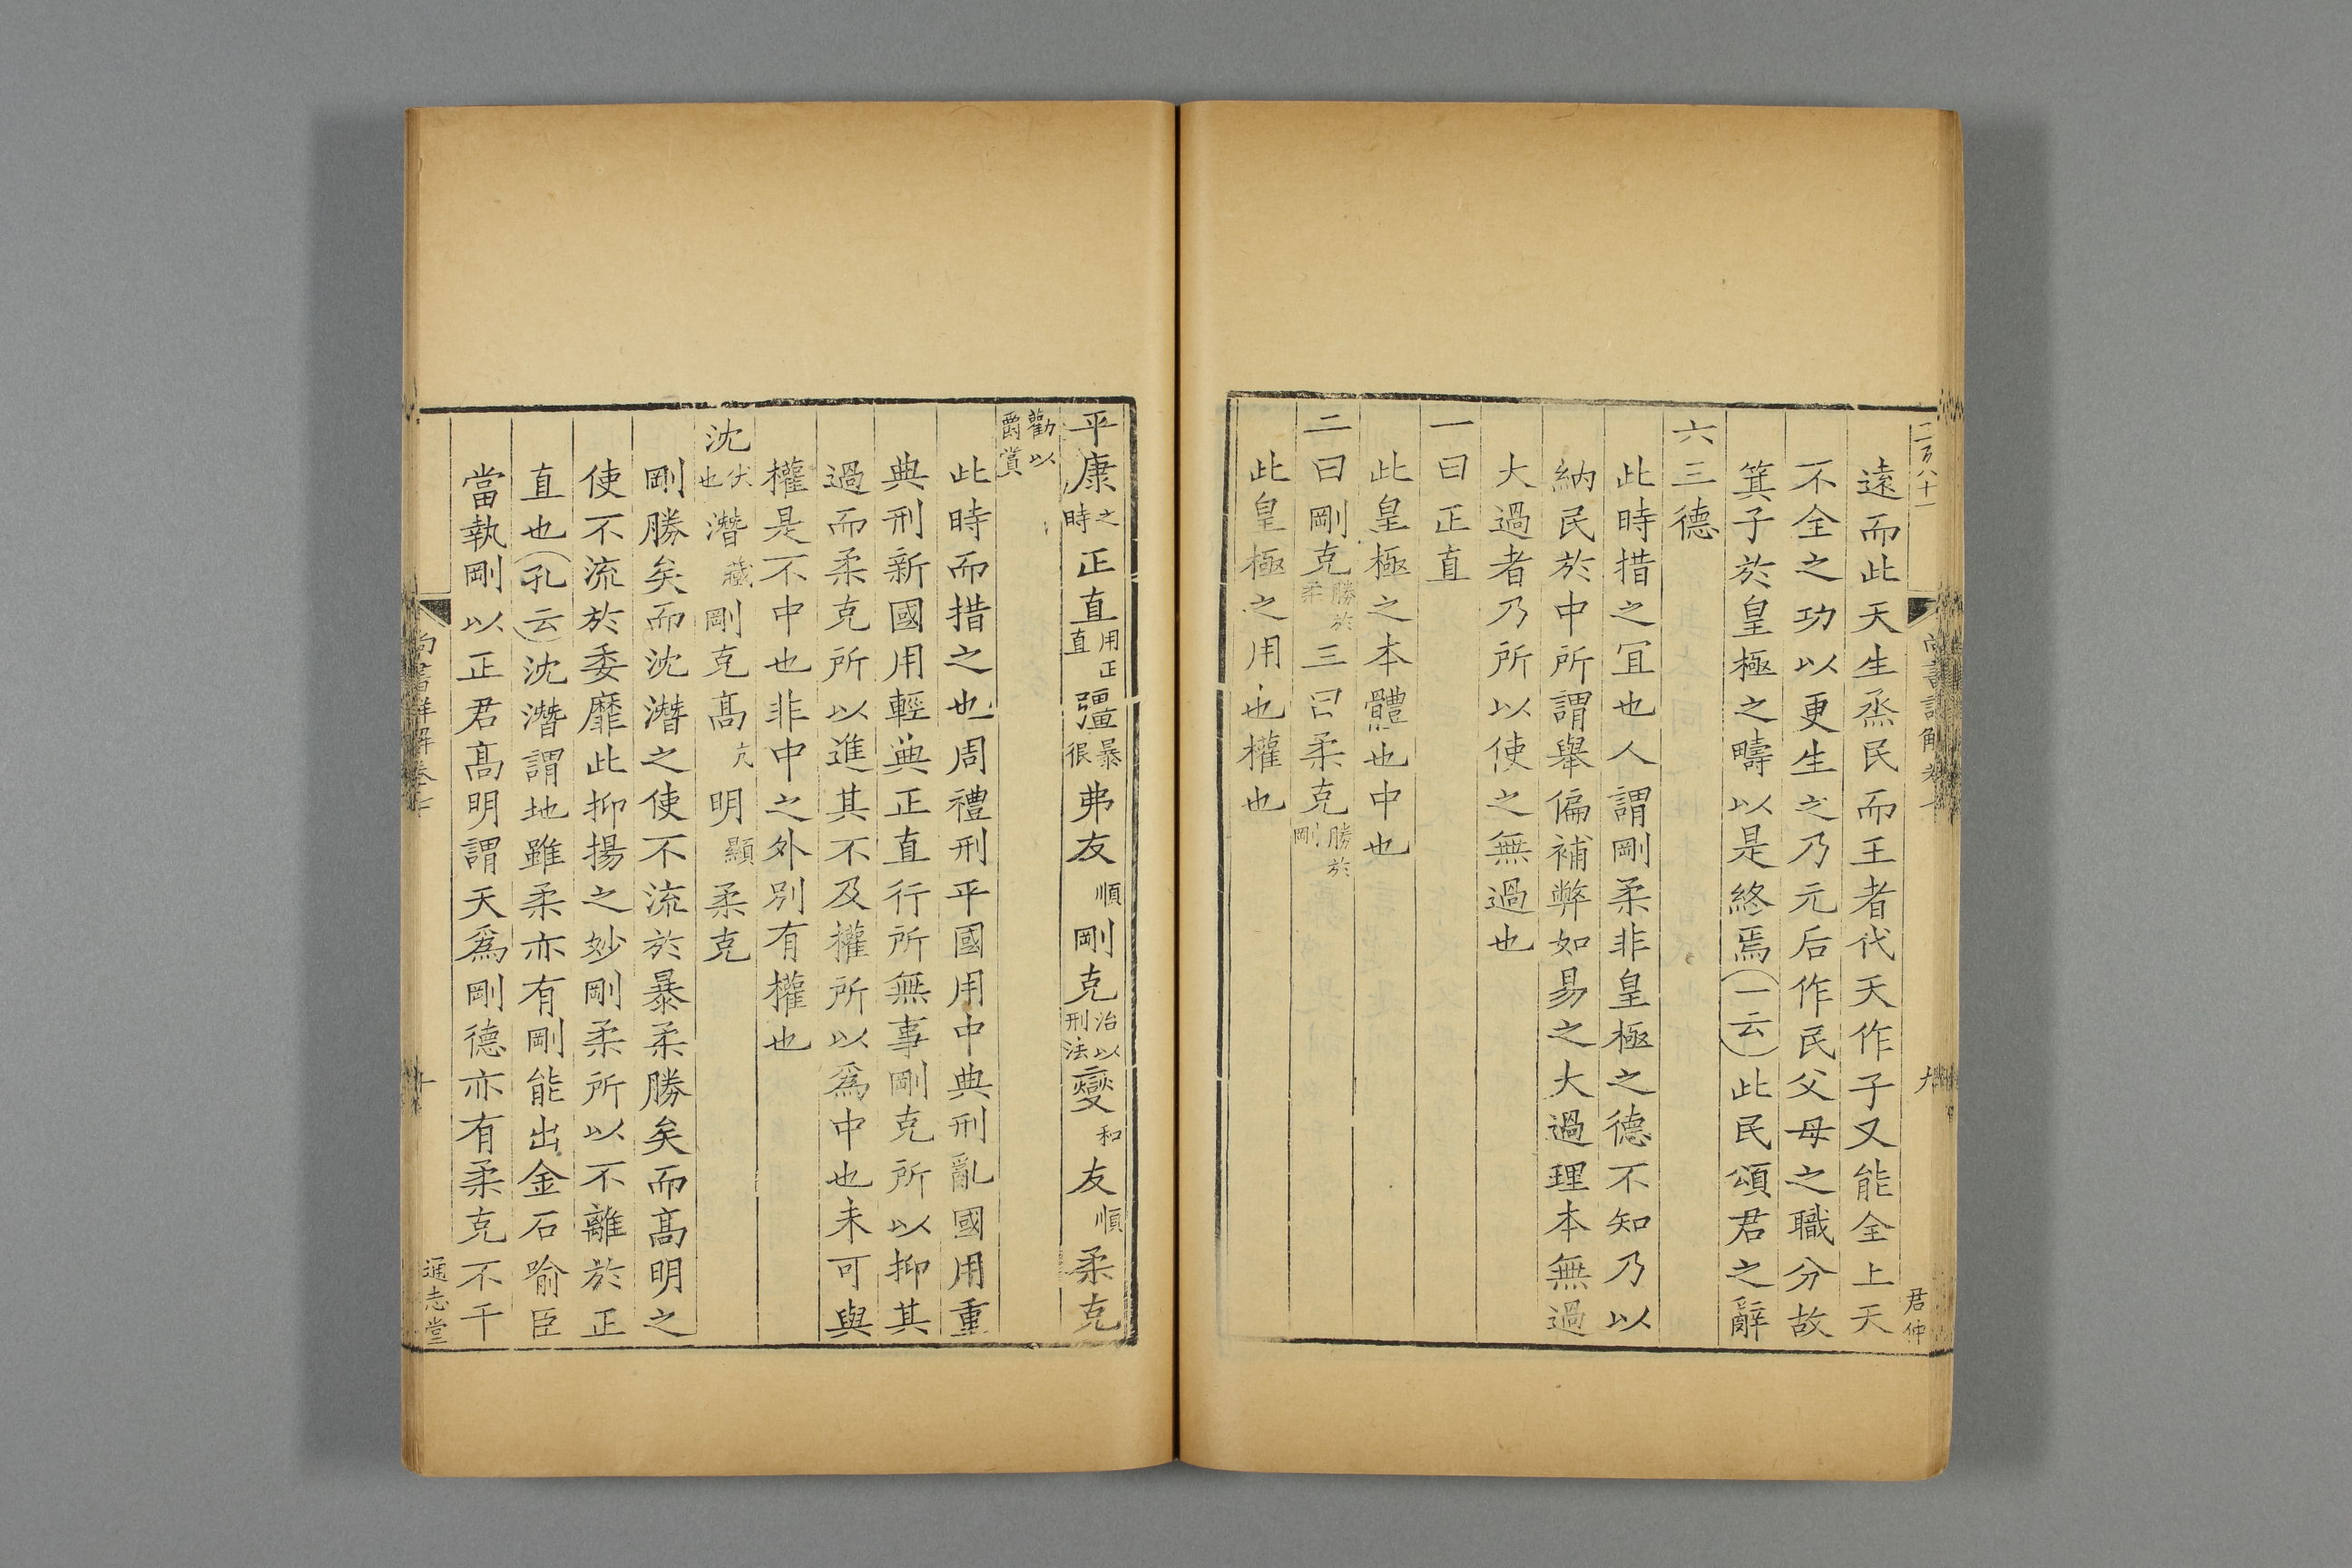 二百八十一
遠而此天生烝民而王者代天作子又能全上天
不全之功以更生之乃元后作民父母之職分故
箕子於皇極之疇以是終焉一云此民頌君之辭
六三德
此時措之冝也人謂剛柔非皇極之德不知乃以
納民於中所謂舉偏補弊如易之大過理本無過
大過者乃所以使之無過也
一曰正直
此皇極之本體也中也
二曰剛克勝於柔三曰柔克勝於剛
此皇極之用也權也
君仲
平康之時正直用正直彊暴很弗友順剛克治以刑法燮和友順柔克
勸以爵賞
此時而措之也周禮刑平國用中典刑亂國用重
典刑新國用輕典正直行所無事剛克所以抑其
過而柔克所以進其不及權所以爲中也未可與
權是不中也非中之外別有權也
沈伏也潛藏剛克髙亢明顯柔克
剛勝矣而沈潛之使不流於暴柔勝矣而髙明之
使不流於委靡此抑揚之妙剛柔所以不離於正
直也孔云沈潛謂地雖柔亦有剛能出金石喻臣
當執剛以正君髙明謂天爲剛德亦有柔克不干
尚書詳解卷七
十
通志堂